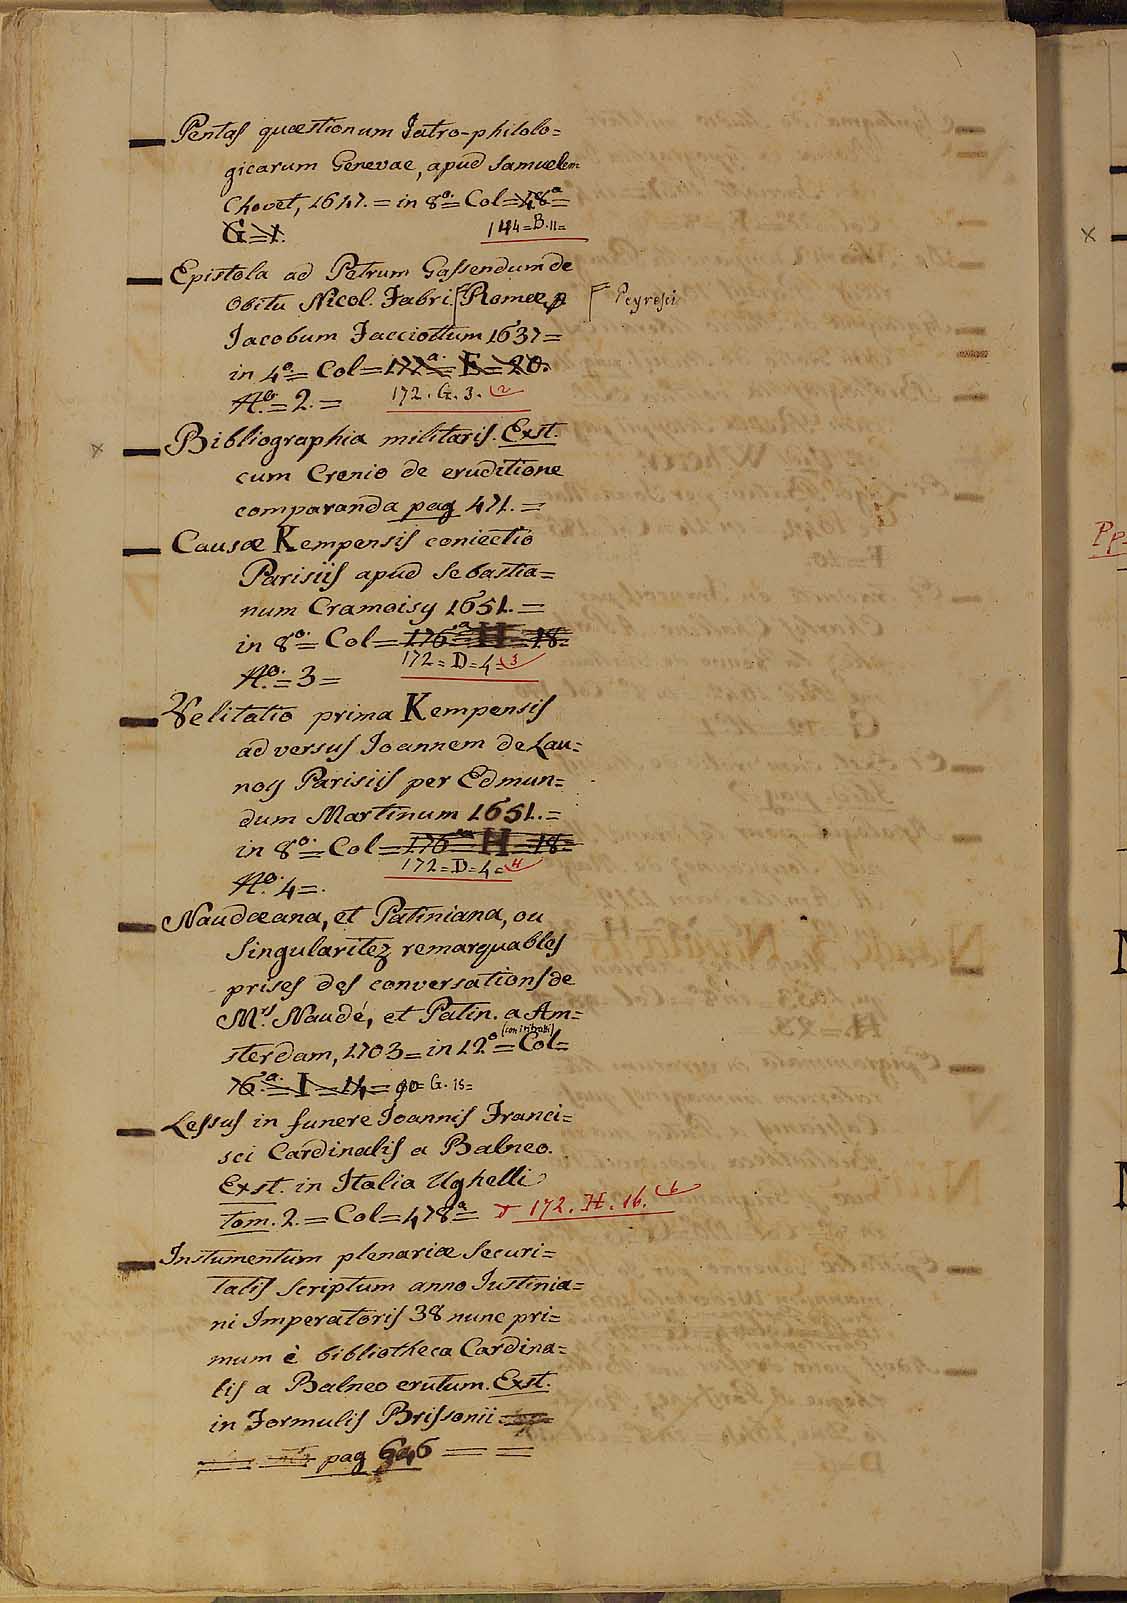 Pentas quæstionum Iatro-philolo=
gicarum Genevae, apud Samuelem
Chovet, 1647. = in 8.º = Col = 48ª =
G = 1.
144 = B. 11 =
Epistola ad Petrum Gassendum de
obitu Nicol. Fabri. Romae, p
Peyresci
Jacobum Facciottum 1637 =
in 4.º = Col = 172ª. = E = 20.
N.º = 2. =
172. G. 3. 2
× Bibliographia militaris. Exst.
cum Crenio de eruditione
comparanda pag 471. =
Causæ Kempensis coniectio
Parisiis apud Sebastia=
num Cramoisy 1651. =
in 8.º = Col = 176ª = H = 18 =
172 = D = 4 = 3
N.º = 3 =
Velitatio prima Kempensis
adversus Joannem de Lau=
noy Parisiis per Edmun=
dum Martinum 1651. =
in 8.º = Col = 176 = H = 18 =
172 = D = 4 = 4
N.º 4 =.
Naudæana, et Patiniana, ou
Singularitez remarquables
prises des conversations de
M.rs Naudé, et Patin. a Am=
sterdam, 1703 = in 12º = Col =
76.ª = I = 14 = 90 = G. 15 =
Lessus in funere Joannis Franci=
sci Cardinalis a Balneo.
Exst. in Italia Ughelli
tom. 2. = Col = 478ª = 172. H. 16. 6
Instumentum plenariæ securi=
tatis scriptum anno Iustinia=
ni Imperatoris 38 nunc pri=
mum è bibliotheca Cardina=
lis a Balneo erutum. Exst.
in Formulis Brissonii
pag 646 = =
×